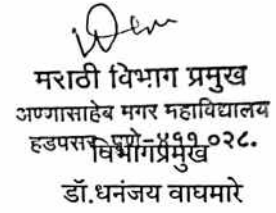 मराठी विभाग प्रमुख
अण्णासाहेब मगर महाविद्यालय
हडपसर, पुणे-४११ ०२८.
विभागप्रमुख
डॉ.धनंजय वाघमारे